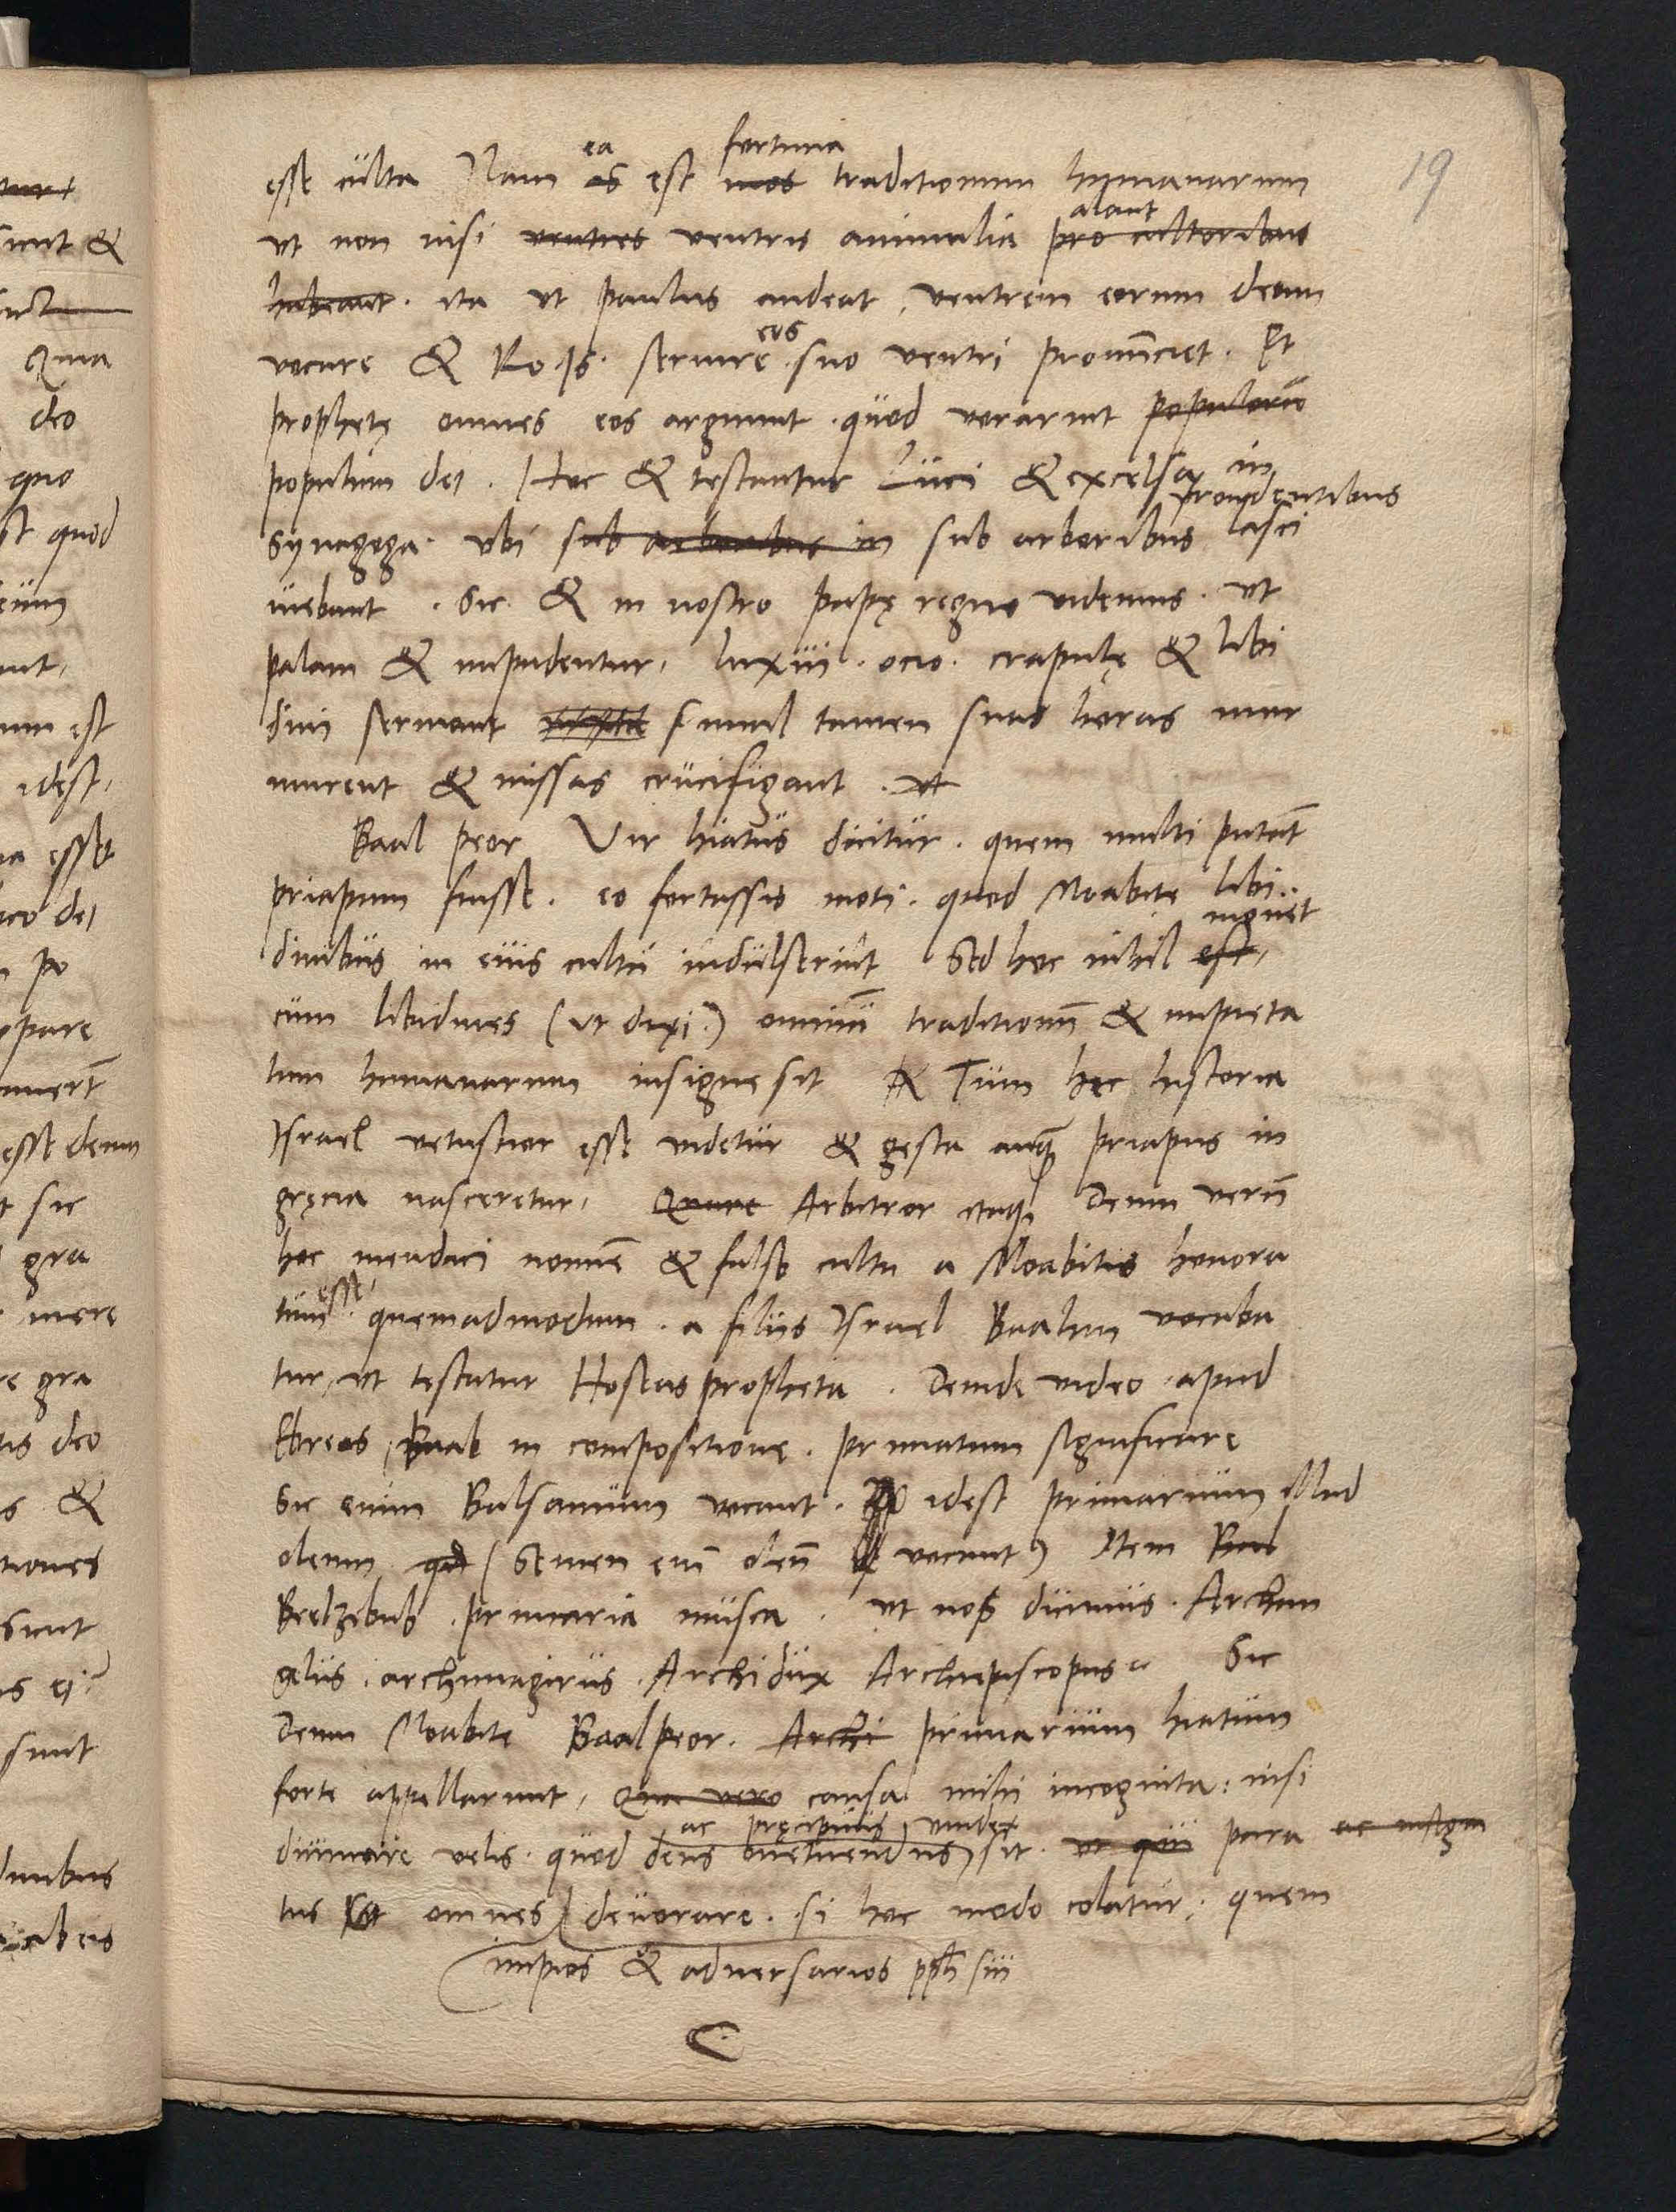 19
esse culta Nam ea is est fortuna mos traditionum humanarum
vt non nisi ventres ventris animalia alant pro cultoribus
habeant. ita vt paulus audeat, ventrem eorum deum
vocare & Ro. 16. seruire eos suo ventri pronunciet. Et
prophetę omnes eos arguunt. quod vorarint populorum
populum dei. Hoc & testantur Luci & excelsa in
synagoga. vbi sub arboribus in sub arboribus frondentibus lasci
uiebant. Sic & in nostro papę regno videmus. vt
palam & impudenter, luxui. ocio. crapulę & libi
dini seruiant simul tamen suas horas mur
murent & missas crucifigant. vt
Baal peor Vir hiatus dicitur. quem multi putant
priapum fuisse. eo fortassis moti. quod Moabite libi
dinibus in eius cultu indulserint Sed hoc nihil mouet est,
cum libidines (vt dixi.) omnium traditionum & impieta
tum humanarum insigne sit & Tum hęc historia
Israel vetustior esse videtur & gesta antequam priapus in
gręcia nasceretur, Quare Arbitror itaque Deum verum
hoc mendaci nomine & falso cultu a Moabitis honora
tum esse. quemadmodum. a filiis Israel Baalim vocaba
tur, vt testatur Hoseas propheta. Deinde video apud
Ebreos, Baal in compositione. primatum significare
Sic enim Balsamum vocant. idest primarium Illud
oleum (Semen enim oleum vocant) Item Baal
Beelzebub. primaria musca. vt nos dicimus. Archan
gelus. archimagirus. Archidux Archiepiscopus. Sic
Deum Moabite Baalpeor. Archi primarium hiatum
forte appellarunt, Qua vero causa mihi incognita: nisi
diuinare velis. quod deus ac pręcipuus vindex metuendus sit. vt qui para ac insign
tus omnes deuorare. si hoc modo colatur. quem
impios & aduersarios pph sui
C